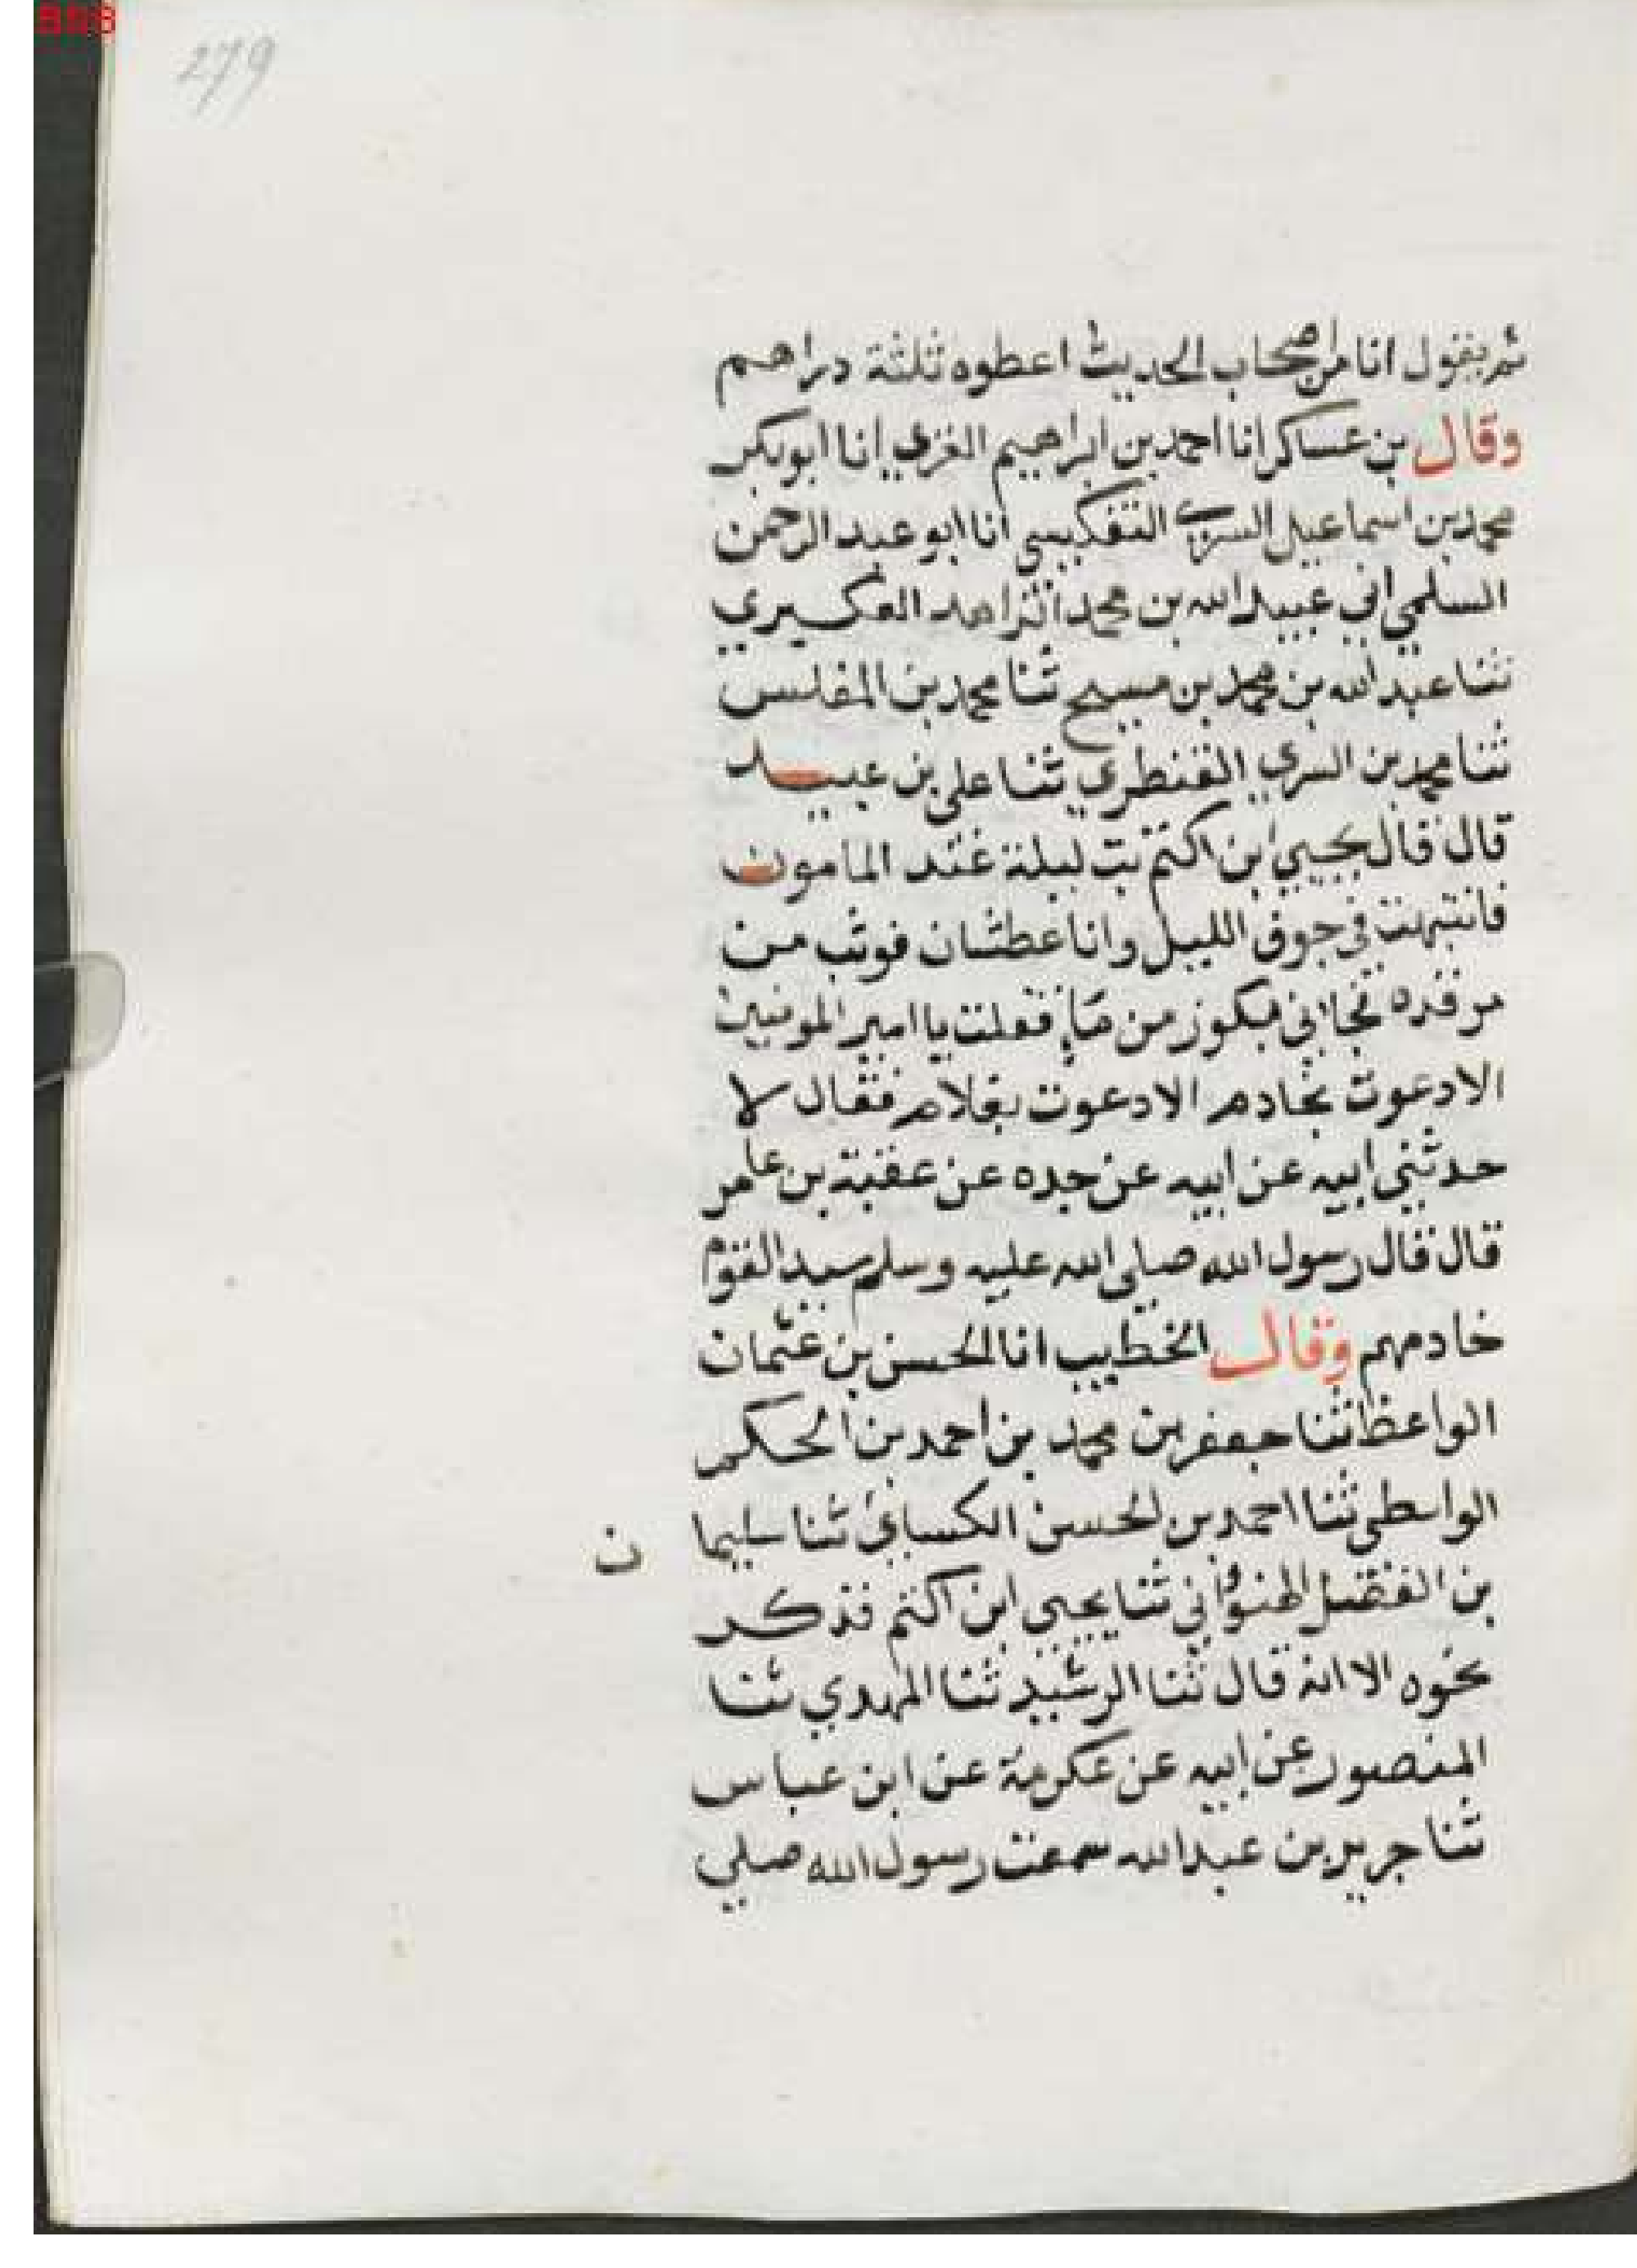 279
ثم يقول انا من اصحاب الحديث اعطوه ثلثة دراهم
وقال بن عساكر انا احمد بن ابراهيم الغزي انا ابو بكر
محمد بن اسماعيل السري التفكيسي انا ابو عبد الرحمن
السلمي اني عبيد الله بن محمد الزاهد العكبري
ثنا عبد الله بن محمد بن مسيح ثنا محمد بن المغلس
ثنا محمد بن السري القنطري ثنا علي بن عبيد
قال قال يحيي ابن اكثم بت ليلة عند المامون
فانتبهت في جوف الليل وانا عطشان فوثب من
مرقده فجااني بكوز من ماء فقلت يا امير المومنين
الا دعوت بخادم الا دعوت بغلام فقال لا
حدثني ابيه عن ابيه عن جده عن عقبة بن عامر
قال قال رسول الله صلي الله عليه وسلم سيد القوم
خادمهم وقال الخطيب انا الحسن بن عثمان
الواعظ ثنا جعفر بن محمد بن احمد بن الحكم
الواسطي ثنا احمد بن الحسن الكسائي ثنا سليما
ن
بن الفضل ثنا يحيي ابن اكثم فذكر
نحوه الا انه قال ثنا الرشيد ثنا المهدي ثنا
المنصور عن ابيه عن عكرمة عن ابن عباس
ثنا جرير بن عبد الله سمعت رسول الله صلي